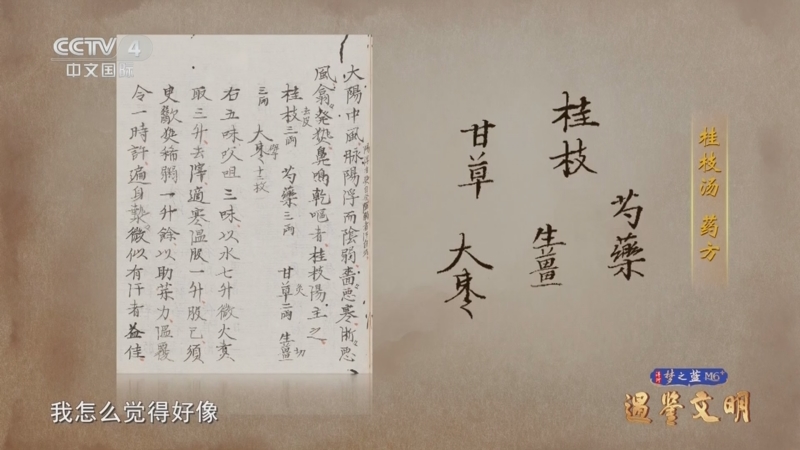 CCTV 4
中文国际
大陽中風脉陽浮而陰弱嗇嗇惡寒淅淅惡
風翕翕發熱鼻鳴乾嘔者桂枝陽主之
桂枝三两去皮 芍藥三两 甘草二两炙 生薑
三两切 大枣十二枚擘
右五味㕮咀三味以水七升微火煑
取三升去滓適寒温服一升服已須
臾歠熱稀粥一升餘以助藥力温覆
令一時許遍身漐漐微似有汗者益佳
桂枝
芍藥
甘草
生薑
大枣
桂枝汤 药方
梦之蓝 M6+
遇鉴文明
我怎么觉得好像